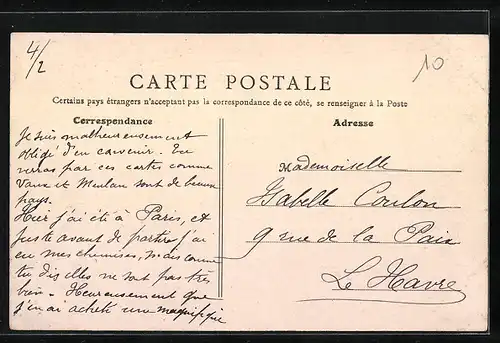 4/2
10
CARTE POSTALE
Certains pays étrangers n'acceptant pas la correspondance de ce côté, se renseigner à la Poste
Correspondance
Je suis malheureusement
obligé d'en convenir. Tu
verras par ces cartes comme
Vaux et Meulan sont de beaux
pays.
Hier j'ai été à Paris, et
juste avant de partir j'ai
eu mes chemises, mais comme
tu dis elles ne sont pas très
bien - Heureusement que
j'en ai acheté une magnifique
Adresse
Mademoiselle
Isabelle Coulon
9 rue de la Paix
Le Havre